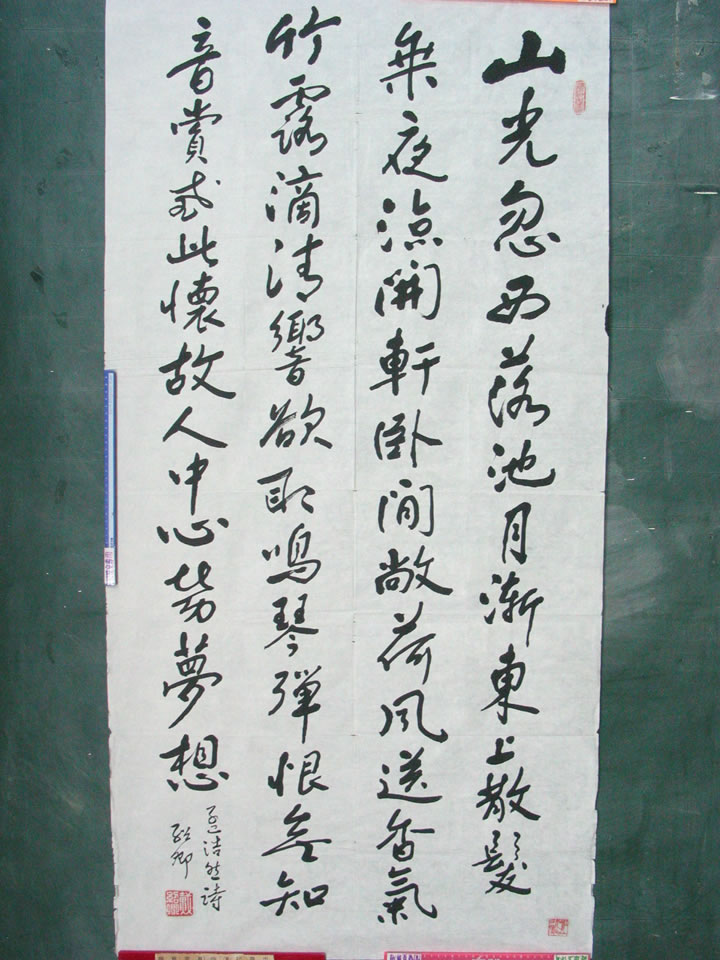 山光忽西落池月漸東上散髮
乘夜涼開軒臥閒敞荷風送香氣
竹露滴清響欲取鳴琴彈恨無知
音賞感此懷故人中心勞夢想
孟浩然詩